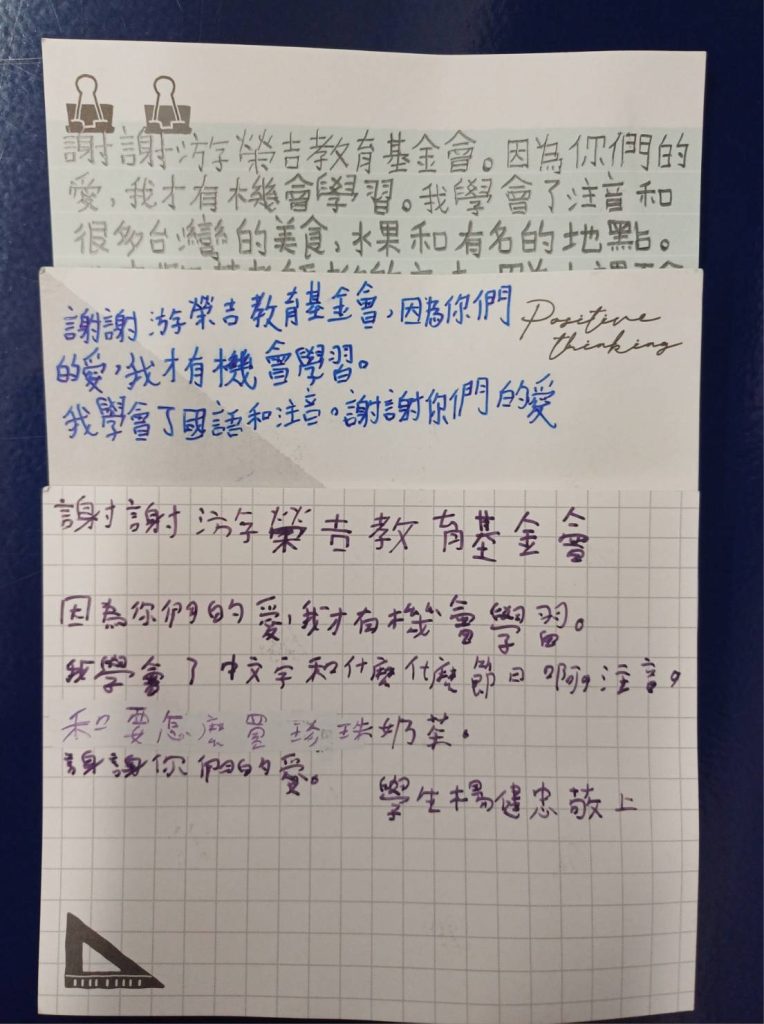 謝謝游榮吉教育基金會。因為你們的
愛，我才有機會學習。我學會了注音和
很多台灣的美食，水果和有名的地點。
謝謝游榮吉教育基金會，因為你們
的愛，我才有機會學習。
我學會了國語和注音。謝謝你們的愛
Positive
thinking
謝謝游榮吉教育基金會
因為你們的愛，我才有機會學習。
我學會了中文字和什麼什麼節日啊，注音，
和要怎麼買珍珠奶茶。
謝謝你們的愛。
學生楊健忠敬上